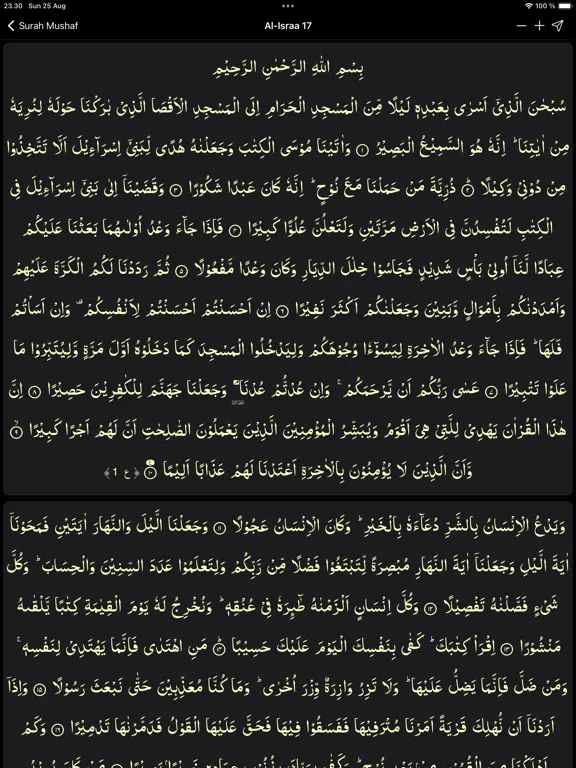 23.30 Sun 25 Aug
100 %
Surah Mushaf
Al-Israa 17
بِسْمِ اللهِ الرَّحْمٰنِ الرَّحِيْمِ
سُبْحٰنَ الَّذِيْٓ اَسْرٰى بِعَبْدِهٖ لَيْلًا مِّنَ الْمَسْجِدِ الْحَرَامِ اِلَى الْمَسْجِدِ الْاَقْصَا الَّذِيْ بٰرَكْنَا حَوْلَهٗ لِنُرِيَهٗ
مِنْ اٰيٰتِنَا ؕ اِنَّهٗ هُوَ السَّمِيْعُ الْبَصِيْرُ ۝۱ وَاٰتَيْنَا مُوْسَى الْكِتٰبَ وَجَعَلْنٰهُ هُدًى لِّبَنِيْٓ اِسْرَآءِيْلَ اَلَّا تَتَّخِذُوْا
مِنْ دُوْنِيْ وَكِيْلًا ۝۲ ذُرِّيَّةَ مَنْ حَمَلْنَا مَعَ نُوْحٍ ؕ اِنَّهٗ كَانَ عَبْدًا شَكُوْرًا ۝۳ وَقَضَيْنَآ اِلٰى بَنِيْٓ اِسْرَآءِيْلَ فِي
الْكِتٰبِ لَتُفْسِدُنَّ فِي الْاَرْضِ مَرَّتَيْنِ وَلَتَعْلُنَّ عُلُوًّا كَبِيْرًا ۝۴ فَاِذَا جَآءَ وَعْدُ اُوْلٰىهُمَا بَعَثْنَا عَلَيْكُمْ
عِبَادًا لَّنَآ اُولِيْ بَاْسٍ شَدِيْدٍ فَجَاسُوْا خِلٰلَ الدِّيَارِ وَكَانَ وَعْدًا مَّفْعُوْلًا ۝۵ ثُمَّ رَدَدْنَا لَكُمُ الْكَرَّةَ عَلَيْهِمْ
وَاَمْدَدْنٰكُمْ بِاَمْوَالٍ وَّبَنِيْنَ وَجَعَلْنٰكُمْ اَكْثَرَ نَفِيْرًا ۝۶ اِنْ اَحْسَنْتُمْ اَحْسَنْتُمْ لِاَنْفُسِكُمْ ۫ وَاِنْ اَسَاْتُمْ
فَلَهَا ؕ فَاِذَا جَآءَ وَعْدُ الْاٰخِرَةِ لِيَسُوْٓءٗا وُجُوْهَكُمْ وَلِيَدْخُلُوا الْمَسْجِدَ كَمَا دَخَلُوْهُ اَوَّلَ مَرَّةٍ وَّلِيُتَبِّرُوْا مَا
عَلَوْا تَتْبِيْرًا ۝۷ عَسٰى رَبُّكُمْ اَنْ يَّرْحَمَكُمْ ۚ وَاِنْ عُدْتُّمْ عُدْنَا ۘ وَجَعَلْنَا جَهَنَّمَ لِلْكٰفِرِيْنَ حَصِيْرًا ۝۸ اِنَّ
هٰذَا الْقُرْاٰنَ يَهْدِيْ لِلَّتِيْ هِيَ اَقْوَمُ وَيُبَشِّرُ الْمُؤْمِنِيْنَ الَّذِيْنَ يَعْمَلُوْنَ الصّٰلِحٰتِ اَنَّ لَهُمْ اَجْرًا كَبِيْرًا ۝۹
وَّاَنَّ الَّذِيْنَ لَا يُؤْمِنُوْنَ بِالْاٰخِرَةِ اَعْتَدْنَا لَهُمْ عَذَابًا اَلِيْمًا ۝۱۰ ﴿ ع 1 ﴾
وَيَدْعُ الْاِنْسَانُ بِالشَّرِّ دُعَآءَهٗ بِالْخَيْرِ ؕ وَكَانَ الْاِنْسَانُ عَجُوْلًا ۝۱۱ وَجَعَلْنَا الَّيْلَ وَالنَّهَارَ اٰيَتَيْنِ فَمَحَوْنَآ
اٰيَةَ الَّيْلِ وَجَعَلْنَآ اٰيَةَ النَّهَارِ مُبْصِرَةً لِّتَبْتَغُوْا فَضْلًا مِّنْ رَّبِّكُمْ وَلِتَعْلَمُوْا عَدَدَ السِّنِيْنَ وَالْحِسَابَ ؕ وَكُلَّ
شَيْءٍ فَصَّلْنٰهُ تَفْصِيْلًا ۝۱۲ وَكُلَّ اِنْسَانٍ اَلْزَمْنٰهُ طٰٓئِرَهٗ فِيْ عُنُقِهٖ ؕ وَنُخْرِجُ لَهٗ يَوْمَ الْقِيٰمَةِ كِتٰبًا يَّلْقٰىهُ
مَنْشُوْرًا ۝۱۳ اِقْرَاْ كِتٰبَكَ ؕ كَفٰى بِنَفْسِكَ الْيَوْمَ عَلَيْكَ حَسِيْبًا ۝۱۴ مَنِ اهْتَدٰى فَاِنَّمَا يَهْتَدِيْ لِنَفْسِهٖ ۚ
وَمَنْ ضَلَّ فَاِنَّمَا يَضِلُّ عَلَيْهَا ؕ وَلَا تَزِرُ وَازِرَةٌ وِّزْرَ اُخْرٰى ؕ وَمَا كُنَّا مُعَذِّبِيْنَ حَتّٰى نَبْعَثَ رَسُوْلًا ۝۱۵ وَاِذَآ
اَرَدْنَآ اَنْ نُّهْلِكَ قَرْيَةً اَمَرْنَا مُتْرَفِيْهَا فَفَسَقُوْا فِيْهَا فَحَقَّ عَلَيْهَا الْقَوْلُ فَدَمَّرْنٰهَا تَدْمِيْرًا ۝۱۶ وَكَمْ